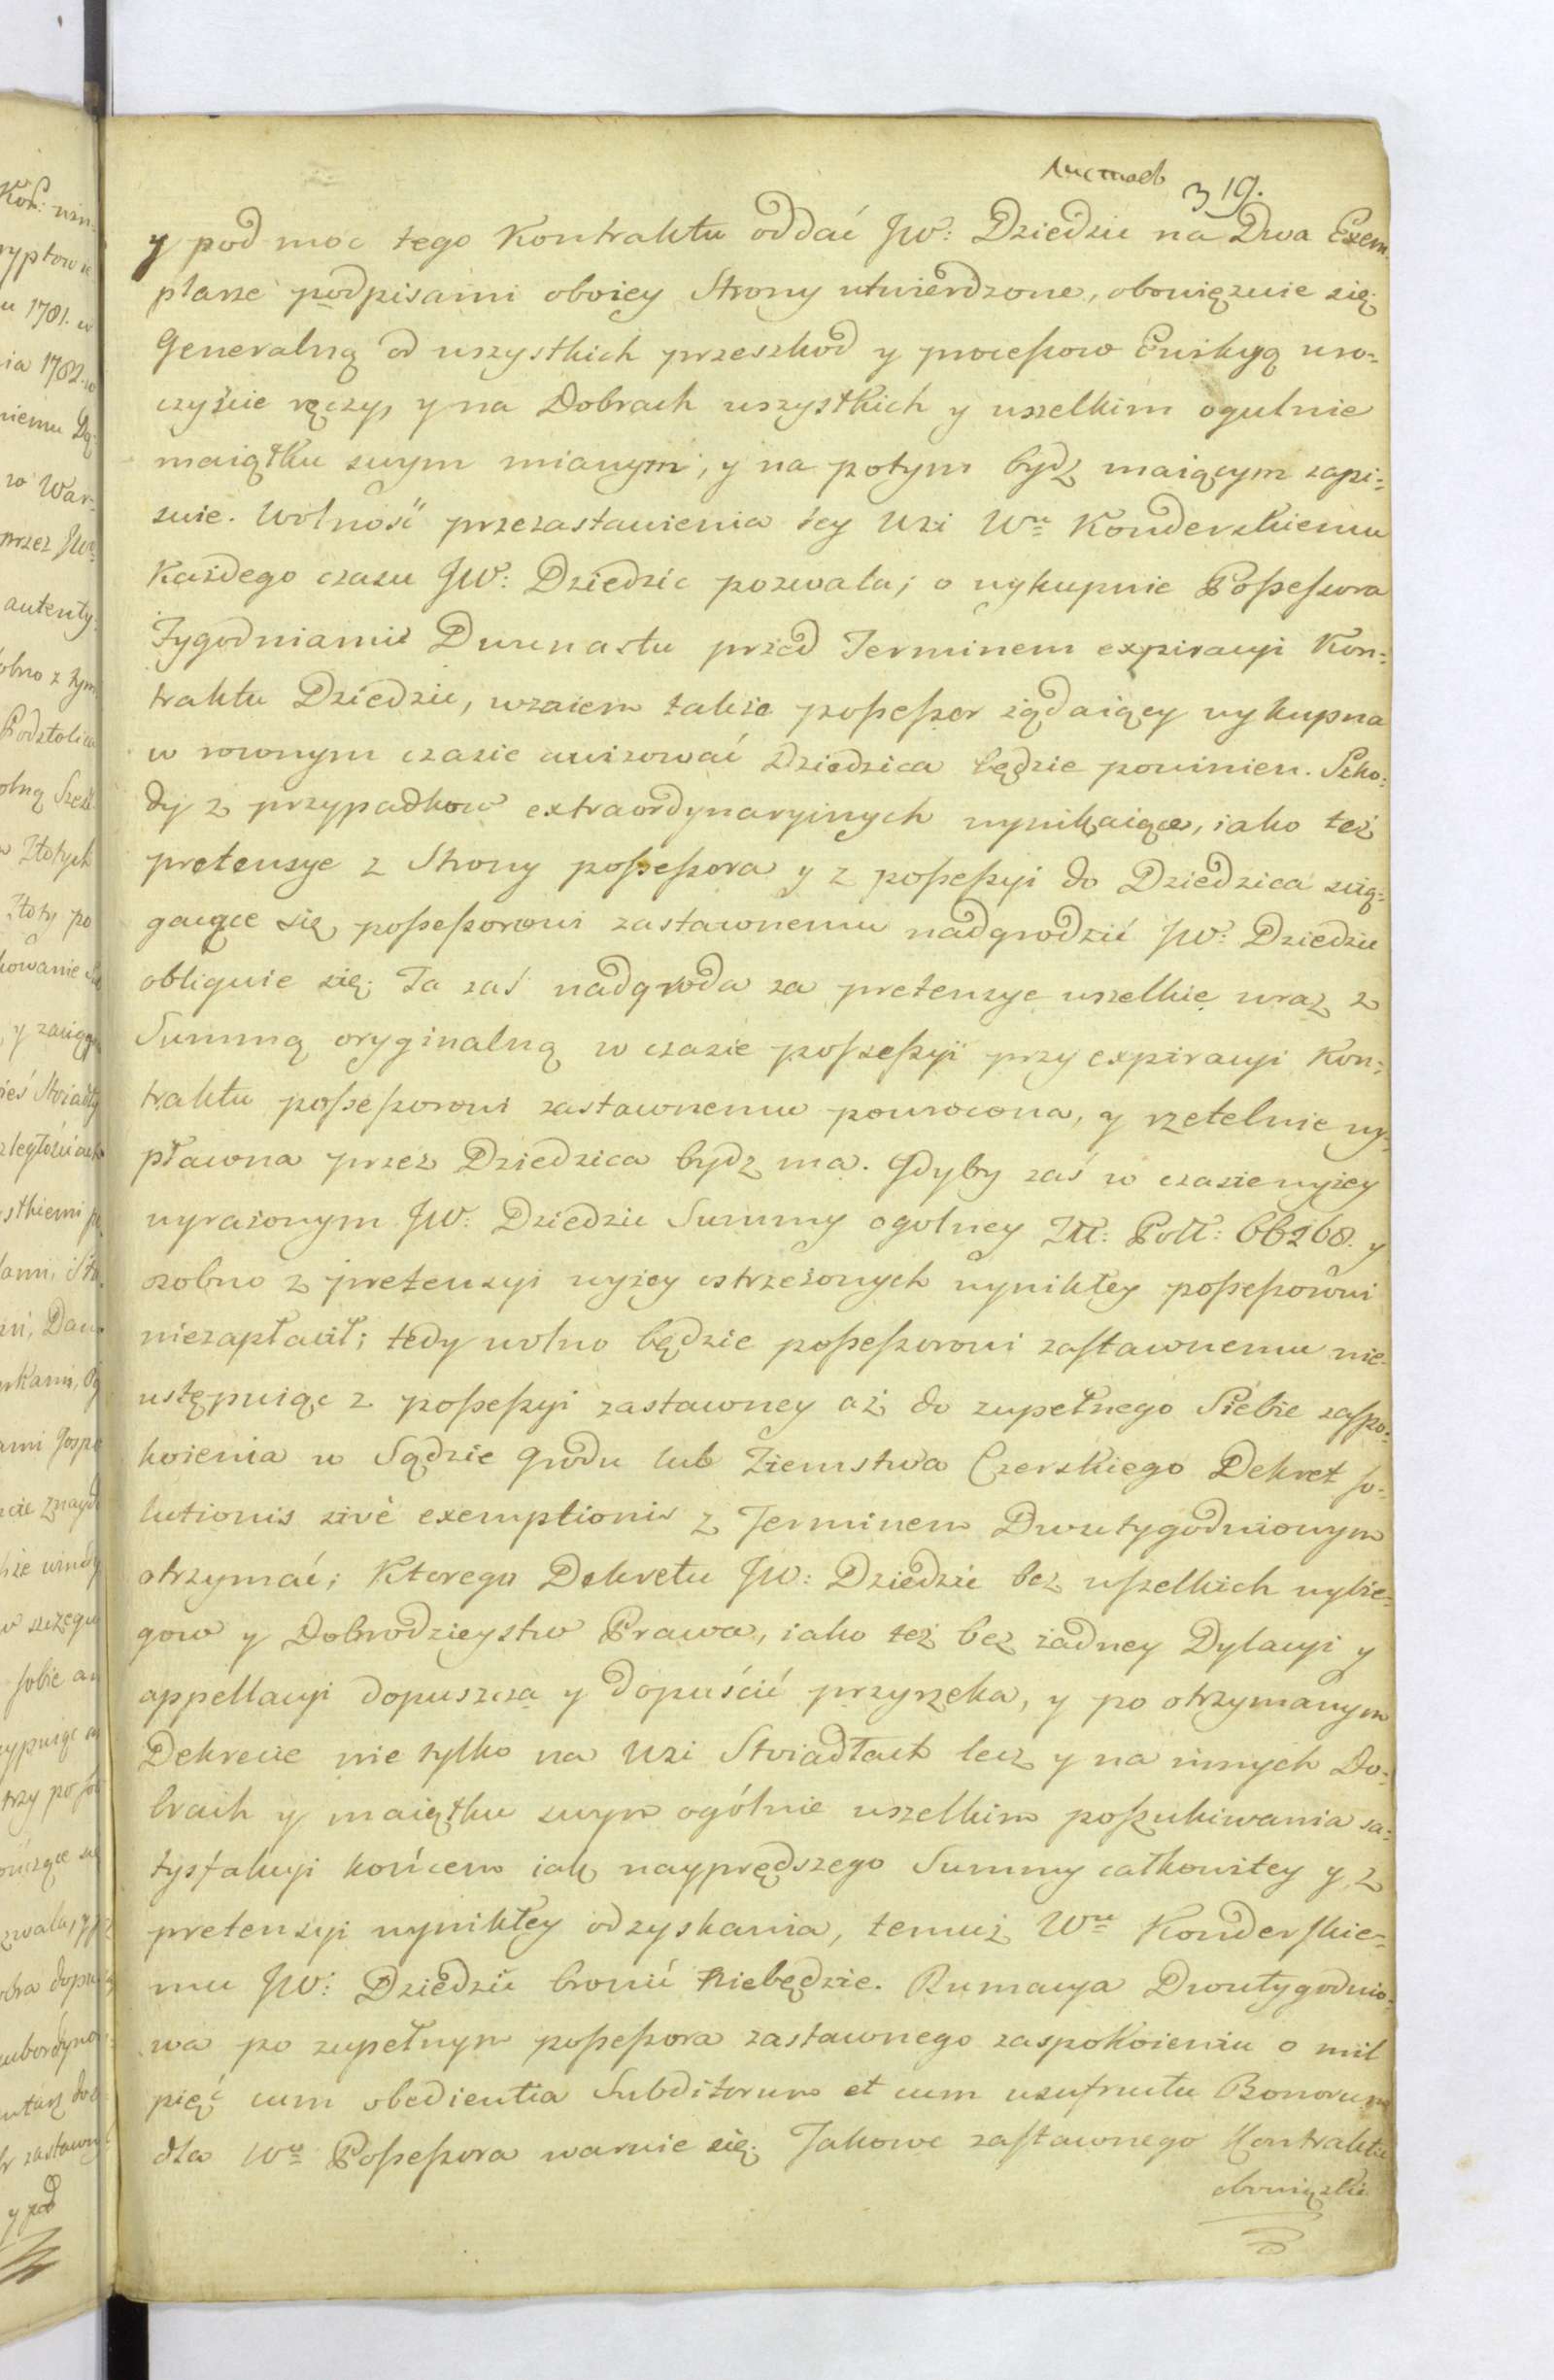 Листовъ 319.
y pod moc tego Kontraktu oddać JW: Dziedzic na Dwa Exem-
plarze podpisami oboiey Strony utwierdzone, obowięzuie się.
Generalną od wszystkich przeszkod y processow Ewikcyą uro-
czyście ręczy, y na Dobrach wszystkich y wszelkim ogulnie
maiątku swym mianym, y na potym bydz maiącym zapi-
suie. Wolność przezastawienia tey Wsi Wu Konderskiemu
Każdego czasu JW: Dziedzic pozwala; o wykupnie Possessora
Tygodniami Dwunastu przed Terminem expiracyi Kon-
traktu Dziedzic, wzaiem także possessor żądaiący wykupna
w rownym czasie awizować Dziedzica będzie powinien. Szko-
dy z przypadkow extraordynaryinych wynikaiące, iako też
pretensye z Strony possessora y z possessyi do Dziedzica ścią-
gaiące się, possessorowi zastawnemu nadgrodzić JW: Dziedzic
obliguie się. Ta zaś nadgroda za pretensye wszelkie wraz z
Summą oryginalną w czasie possessyi przy expiracyi Kon-
traktu possessorowi zastawnemu powrocona, y rzetelnie wy-
płacona przez Dziedzica bydz ma. Gdyby zaś w czasie wyżey
wyrażonym JW: Dziedzic Summy ogolney Złł: Poll: 66268. y
osobno z pretensyi wyżey ostrzeżonych wynikłey possessorowi
niezapłacił; tedy wolno będzie possessorowi zastawnemu nie-
ustępuiąc z possessyi zastawney aż do zupełnego Siebie zaspo-
koienia w Sądzie Grodu lub Ziemstwa Czerskiego Dekret so-
lutionis sivè exemptionis z Terminem Dwutygodniowym
otrzymać; Ktorego Dekretu JW: Dziedzic bez wszelkich wybie-
gow y Dobrodzieystw Prawa, iako też bez żadney Dylacyi y
appellacyi dopuszcza y dopuścić przyrzeka, y po otrzymanym
Dekrecie nie tylko na Wsi Stoiadłach lecz y na innych Do-
brach y maiątku swym ogólnie wszelkim poszukiwania sa-
tysfakcyi końcem iak nayprędszego Summy całkowitey y z
pretensyi wynikłey odzyskania, temuż Wu Konderskie-
mu JW: Dziedzic bronić niebędzie. Rumacya Dwutygodnio-
wa po zupełnym possessora zastawnego zaspokoieniu o mil
pięć cum obedientia Subditorum et cum usufructu Bonorum
dla Wo Possessora waruie się. Takowe zastawnego Kontraktu
obowiązki